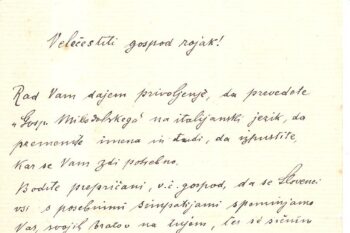 Velečestiti gospod rojak!
Rad Vam dajem privoljenje, da prevedete
„Gospo na italijanski jezik, da
premenite imena in tudi, da izpustite,
kar se Vam zdi potrebno.
Bodite prepričani, v. č. gospod, da se Slovenci
vsi s posebnimi simpatijami spominjamo
Vas, svojih bratov na tujem, ter se